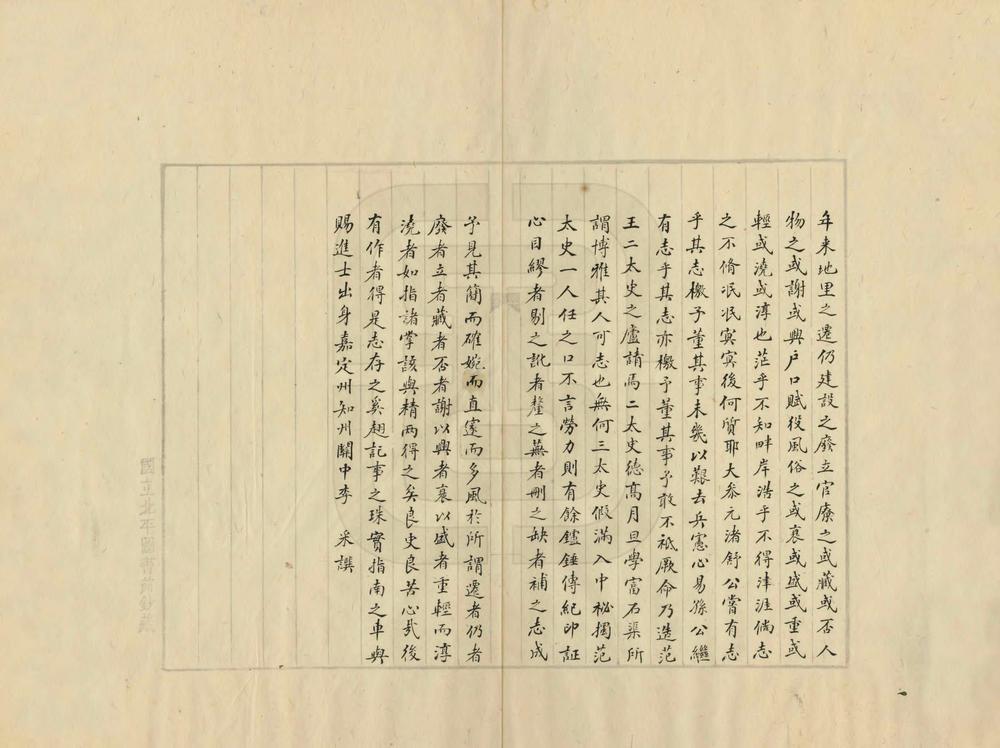 年来地里之遷仍建設之廢立官廩之或藏或否人
物之或謝或興户口賦役風俗之或衰或盛或重或
輕或澆或淳也茫乎不知畔岸浩乎不得津涯倘志
之不脩泯泯寞寞後何質耶大参元渚舒公嘗有志
乎其志檄予董其事未幾以艱去兵憲心易孫公繼
有志乎其志亦檄予董其事予敢不祗厥命乃造范
王二太史之廬請焉二太史德高月旦學富石渠所
謂博雅其人可志也無何三太史假滿入中祕獨范
太史一人任之口不言勞力則有餘鑪錘傳紀印証
心目繆者剔之訛者釐之蕪者刪之缺者補之志成
予見其簡而確婉而直寔而多風於所謂遷者仍者
廢者立者藏者否者謝以興者衰以盛者重輕而淳
澆者如指諸掌該與精两得之矣良史良苦心哉後
有作者得是志存之奚翅記事之珠實指南之車與
賜進士出身嘉定州知州關中李 采譔
國立北平圖書館